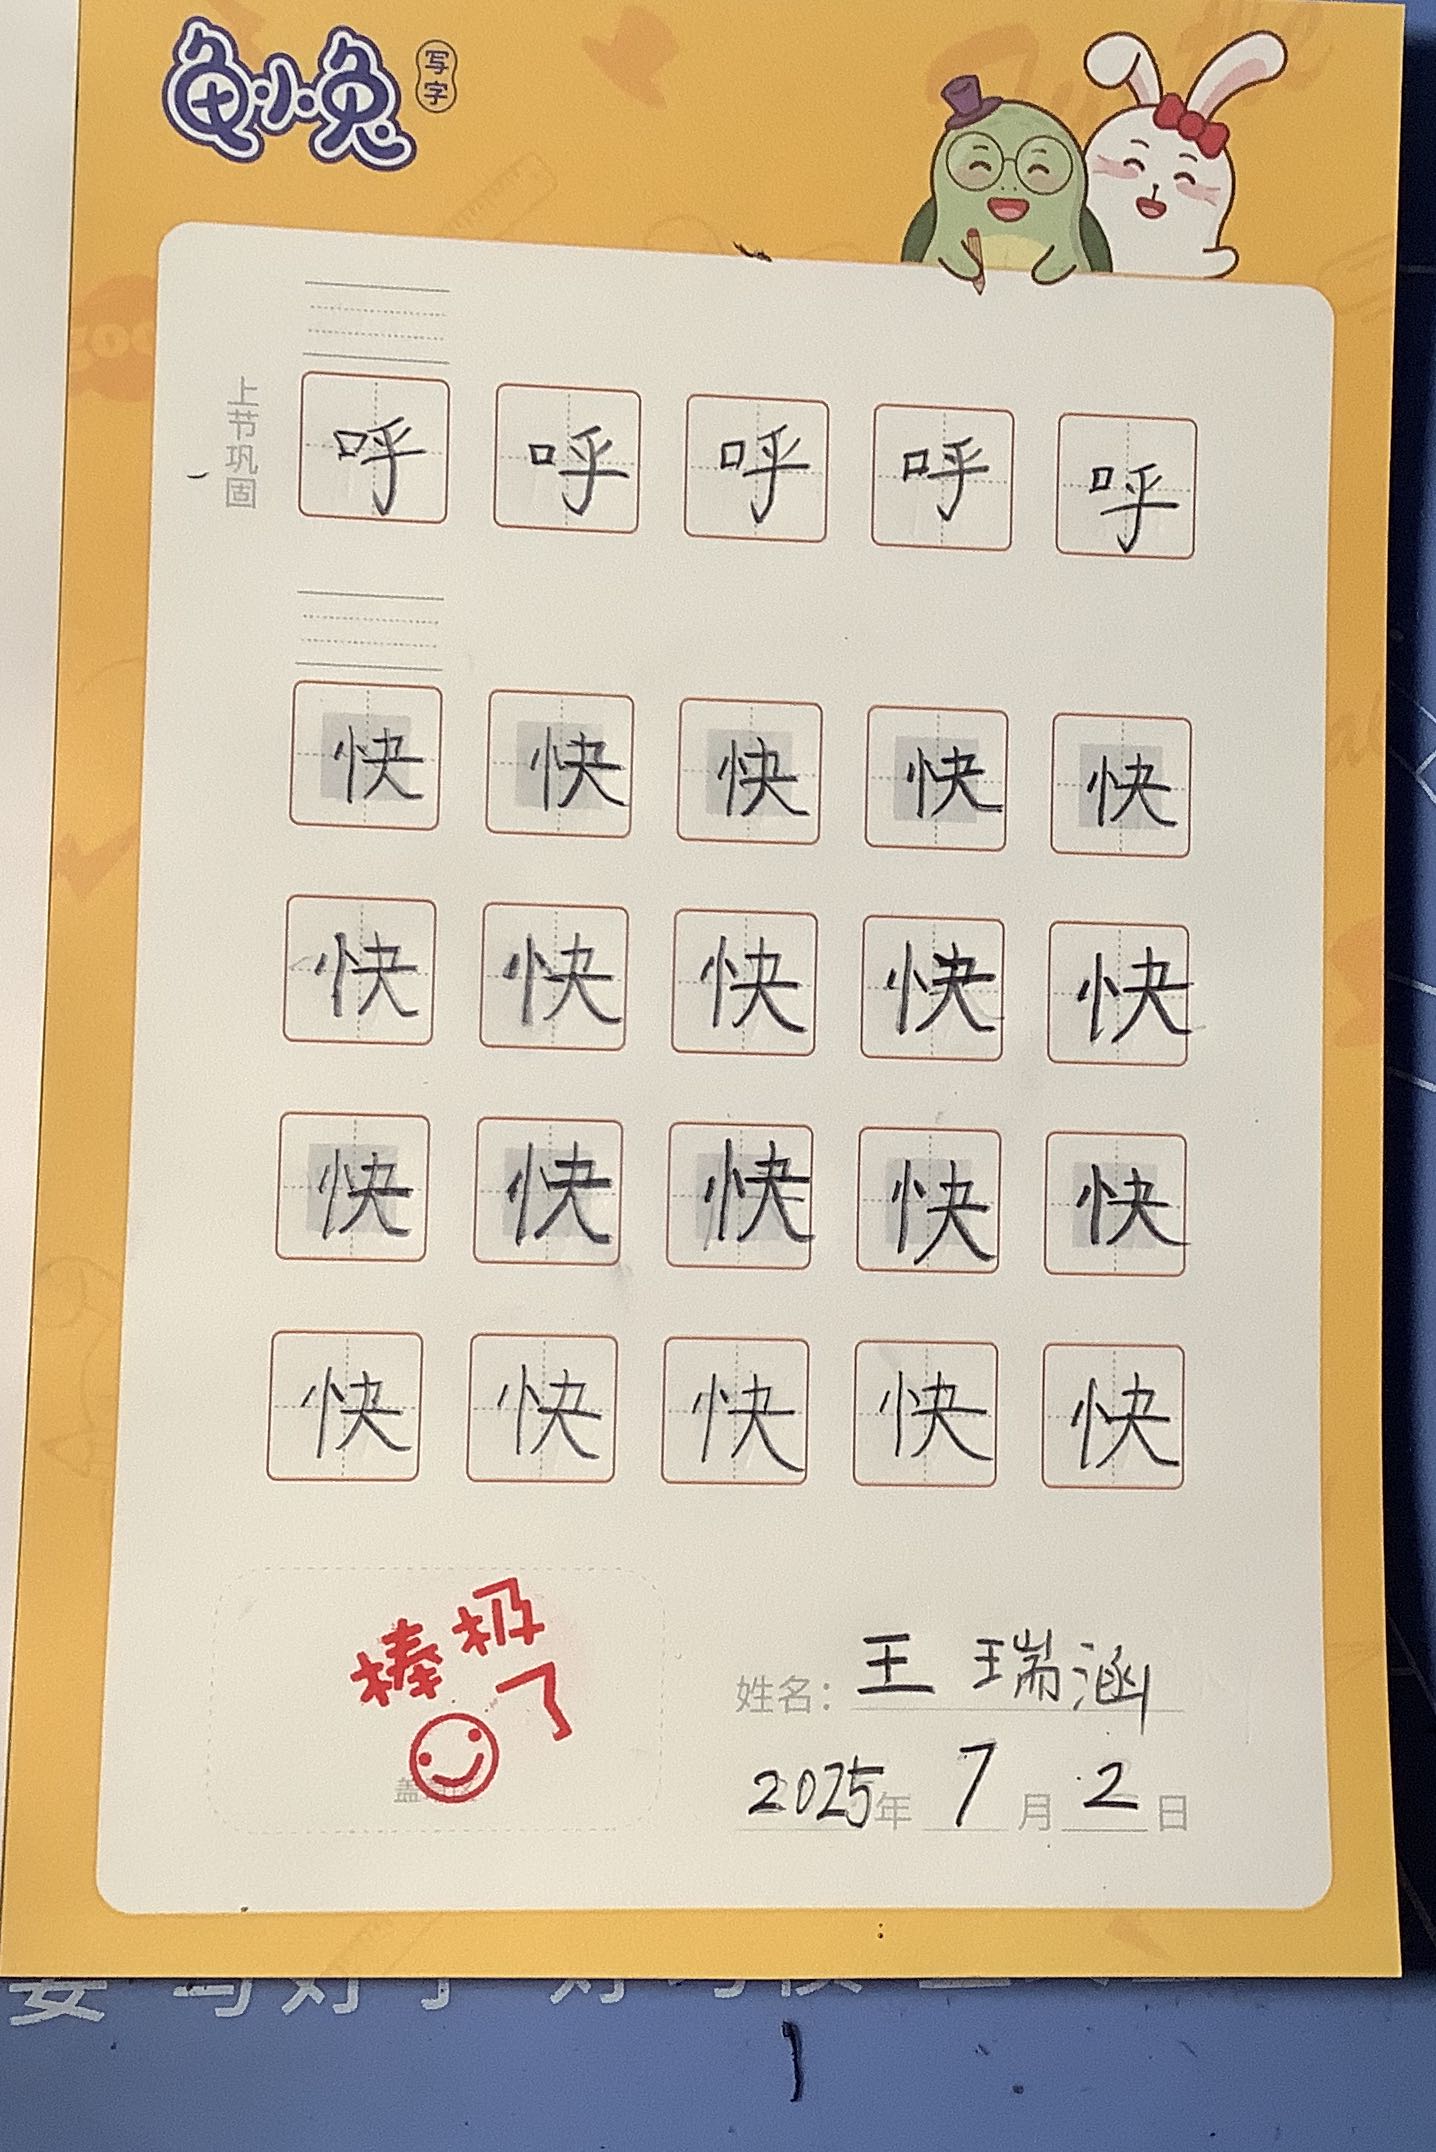 龟小兔 写字
上节巩固
呼 呼 呼 呼 呼
快 快 快 快 快
快 快 快 快 快
快 快 快 快 快
快 快 快 快 快
棒极了
姓名：王瑞涵
2025年7月2日